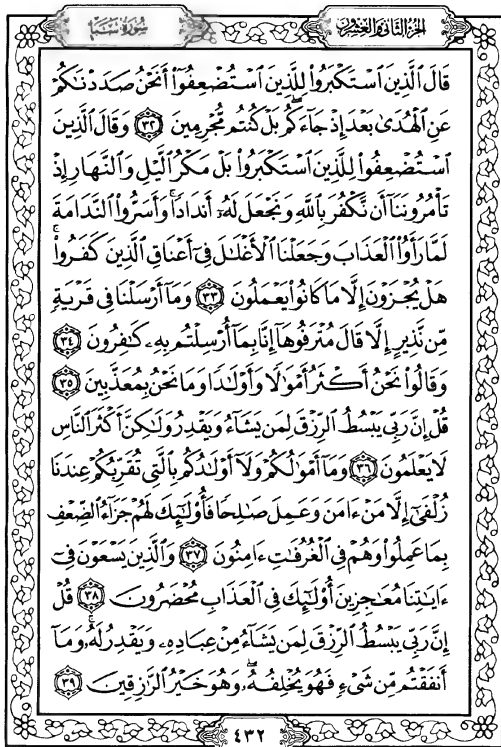 الجزء الثاني والعشرون
سورة سبأ
قَالَ ٱلَّذِينَ ٱسۡتَكۡبَرُواْ لِلَّذِينَ ٱسۡتُضۡعِفُوٓاْ أَنَحۡنُ صَدَدۡنَٰكُمۡ
عَنِ ٱلۡهُدَىٰ بَعۡدَ إِذۡ جَآءَكُمۖ بَلۡ كُنتُم مُّجۡرِمِينَ ٣٢ وَقَالَ ٱلَّذِينَ
ٱسۡتُضۡعِفُواْ لِلَّذِينَ ٱسۡتَكۡبَرُواْ بَلۡ مَكۡرُ ٱلَّيۡلِ وَٱلنَّهَارِ إِذۡ
تَأۡمُرُونَنَآ أَن نَّكۡفُرَ بِٱللَّهِ وَنَجۡعَلَ لَهُۥٓ أَندَادٗاۚ وَأَسَرُّواْ ٱلنَّدَامَةَ
لَمَّا رَأَوُاْ ٱلۡعَذَابَۚ وَجَعَلۡنَا ٱلۡأَغۡلَٰلَ فِيٓ أَعۡنَاقِ ٱلَّذِينَ كَفَرُواْۖ
هَلۡ يُجۡزَوۡنَ إِلَّا مَا كَانُواْ يَعۡمَلُونَ ٣٣ وَمَآ أَرۡسَلۡنَا فِي قَرۡيَةٖ
مِّن نَّذِيرٍ إِلَّا قَالَ مُتۡرَفُوهَآ إِنَّا بِمَآ أُرۡسِلۡتُم بِهِۦ كَٰفِرُونَ ٣٤
وَقَالُواْ نَحۡنُ أَكۡثَرُ أَمۡوَٰلٗا وَأَوۡلَٰدٗا وَمَا نَحۡنُ بِمُعَذَّبِينَ ٣٥
قُلۡ إِنَّ رَبِّي يَبۡسُطُ ٱلرِّزۡقَ لِمَن يَشَآءُ وَيَقۡدِرُ وَلَٰكِنَّ أَكۡثَرَ ٱلنَّاسِ
لَا يَعۡلَمُونَ ٣٦ وَمَآ أَمۡوَٰلُكُمۡ وَلَآ أَوۡلَٰدُكُم بِٱلَّتِي تُقَرِّبُكُمۡ عِندَنَا
زُلۡفَىٰٓ إِلَّا مَنۡ ءَامَنَ وَعَمِلَ صَٰلِحٗا فَأُوْلَٰٓئِكَ لَهُمۡ جَزَآءُ ٱلضِّعۡفِ
بِمَا عَمِلُواْ وَهُمۡ فِي ٱلۡغُرُفَٰتِ ءَامِنُونَ ٣٧ وَٱلَّذِينَ يَسۡعَوۡنَ فِيٓ
ءَايَٰتِنَا مُعَٰجِزِينَ أُوْلَٰٓئِكَ فِي ٱلۡعَذَابِ مُحۡضَرُونَ ٣٨ قُلۡ
إِنَّ رَبِّي يَبۡسُطُ ٱلرِّزۡقَ لِمَن يَشَآءُ مِنۡ عِبَادِهِۦ وَيَقۡدِرُ لَهُۥۚ وَمَآ
أَنفَقۡتُم مِّن شَيۡءٖ فَهُوَ يُخۡلِفُهُۥۖ وَهُوَ خَيۡرُ ٱلرَّٰزِقِينَ ٣٩
٤٣٢